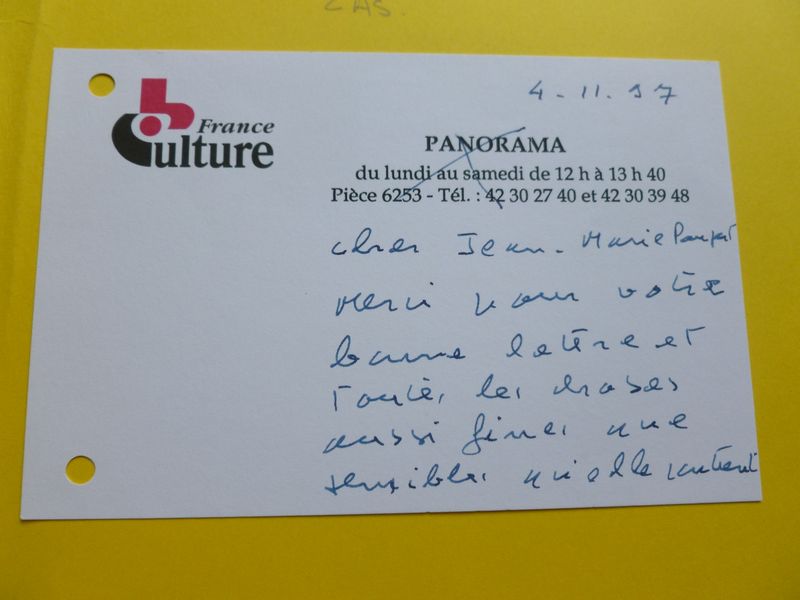 CAS.
4 - 11 . 97
France
Culture
PANORAMA
du lundi au samedi de 12 h à 13 h 40
Pièce 6253 - Tél. : 42 30 27 40 et 42 30 39 48
cher Jean-Marie Paupert
Merci pour votre
bonne lettre et
toutes les choses
aussi fines que
sensibles qu'elle contient